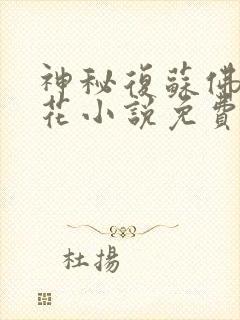 神秘復蘇佛
花小說免費
杜揚